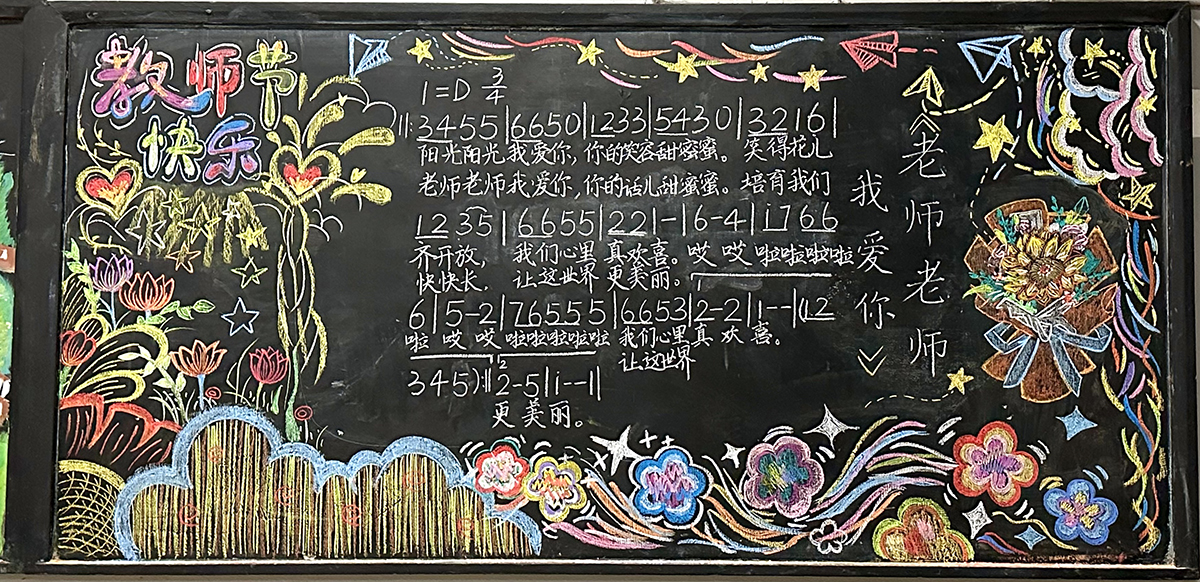 教师节
快乐
1=D 3/4
||:3455|6650|1233|5430|3216|
阳光阳光我爱你,你的笑容甜蜜蜜。笑得花儿
老师老师我爱你,你的话儿甜蜜蜜。培育我们
1235|6655|22|-|6-4|i766
齐开放, 我们心里真欢喜。哎哎啦啦啦啦啦
快快长, 让这世界更美丽。
6|5-2|76555|6653|2-2|1--|(12
啦哎哎啦啦啦啦啦 我们心里真欢喜。
让这世界
345):||2-5|i--||
更美丽。
《老师老师
我爱你》